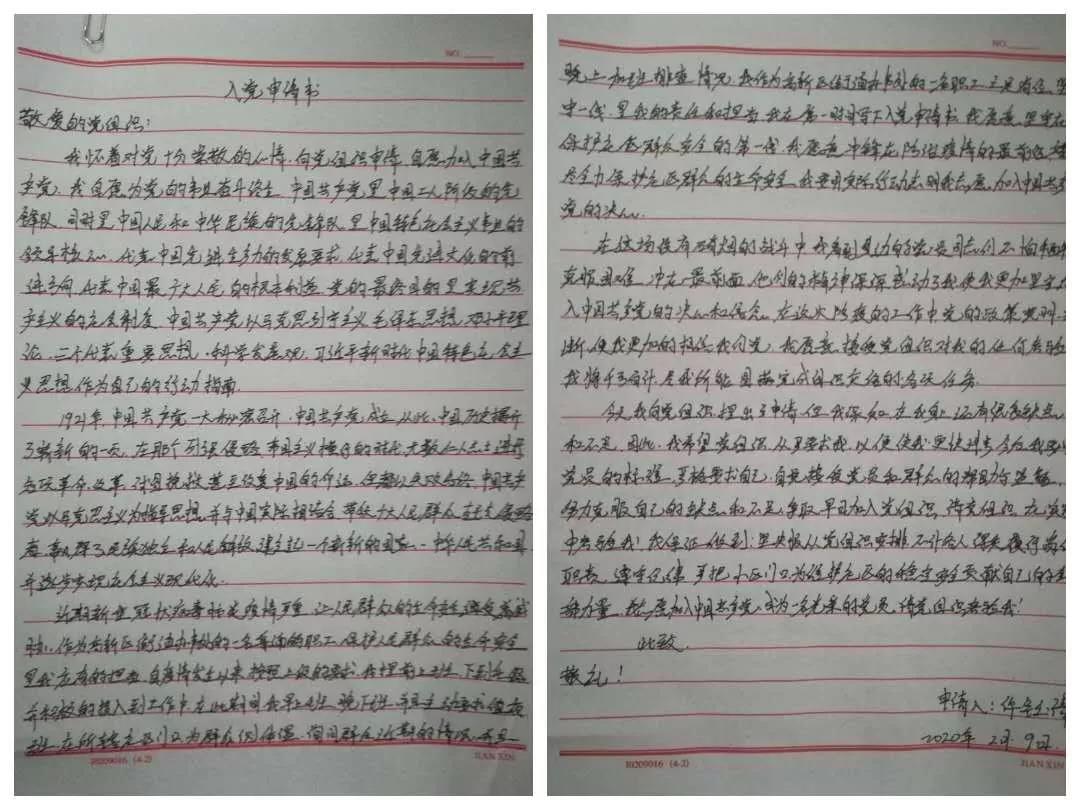 NO.
入党申请书
敬爱的党组织：
我怀着对党十分崇敬的心情，向党组织申请，自愿加入中国共
产党，我自愿为党的事业奋斗终生。中国共产党是中国工人阶级的先
锋队，同时是中国人民和中华民族的先锋队，是中国特色社会主义事业的
领导核心，代表中国先进生产力的发展要求，代表中国先进文化的前
进方向，代表中国最广大人民的根本利益。党的最终目的是实现共
产主义的社会制度。中国共产党以马克思列宁主义、毛泽东思想、邓小平理
论、三个代表重要思想、科学发展观、习近平新时代中国特色社会主
义思想，作为自己的行动指南。
1921年，中国共产党一大秘密召开，中国共产党成立，从此，中国历史揭开
了崭新的一页。在那个列强侵略、帝国主义横行的时代，无数仁人志士进行
各项革命、改革，试图挽救甚至改变中国的命运，但都以失败告终。中国共产
党以马克思主义为指导思想，并与中国实际相结合，带领广大人民群众
取得了民族独立和人民解放，建立起一个新新的国家——中华人民共和国
并逐步实现社会主义现代化。
近期新型冠状病毒肺炎疫情严重，让人民群众的生命安全遭受着威
胁，作为高新区街道办事处的一名普通的职工，保护人民群众的生命安全
是我应有的担当，自疫情发生以来，按照上级的要求，我提前上班，下到社区
并积极的投入到工作中，在此期间我早上班，晚下班，并且主动要求值夜
班，在所辖社区门口为群众测体温，询问群众近期的情况，并且
R0209016 (4-2)
JIAN XIN
NO.
晚上加班排查情况，我作为高新区街道办事处的一名职工，立足岗位，坚
守一线，是我的责任和担当，我在第一时间写下入党申请书，我愿意坚守在
保护社区群众安全的第一线，我愿意冲锋在防治疫情的最前线，
尽全力保护社区群众的生命安全，我要用实际行动去表明我志愿加入中国共产
党的决心。
在这场没有硝烟的战斗中，我看到身边的党员同志们不怕
克服困难，冲在最前面，他们的精神深深感动了我，使我更加坚定
入中国共产党的决心和信念。在这次防疫的工作中，党的政策
，使我更加的相信我们党，我愿意接受党组织对我的任何考验
我将千方百计，尽我所能，圆满完成组织交给的各项任务。
今天，我向党组织提出了申请，但我深知，在我身上还有很多缺点
和不足，因此，我希望党组织从严要求我，以便使我更快进步。今后我要以
党员的标准，严格要求自己，自觉接受党员和群众的帮助与监督，
努力克服自己的缺点和不足，争取早日加入党组织。请党组织在
中考验我！我保证做到：坚决服从党组织安排，不计个人得失，履行
职责，遵守纪律，严把小区门口，为维护社区的稳定安全贡献自己的
力量，我志愿加入中国共产党，成为一名光荣的党员，请党组织考验我！
此致
敬礼！
申请人：
2020年 2月 9日
R0209016 (4-2)
JIAN XIN